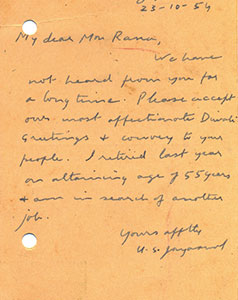 23-10-54
My dear Mon Rana,
We have
not heard from you for
a long time. Please accept
our most affectionate Diwali
Greetings & convey to your
people. I retired last year
on attaining age of 55 years
& am in search of another
job.
Yours affly
U.S.